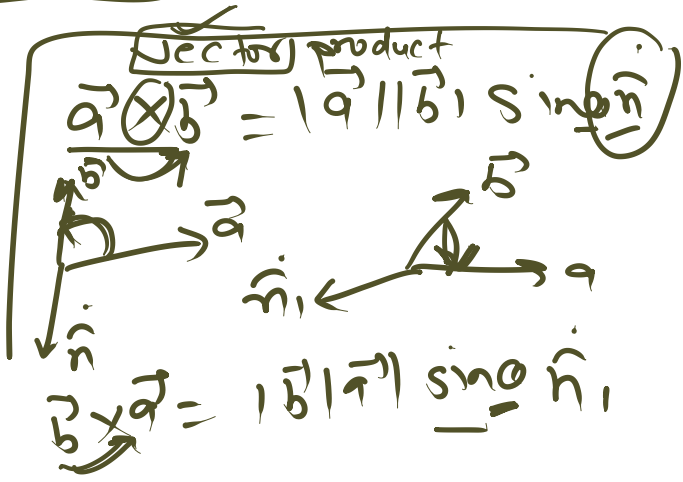 Vector product
a⃗ × b⃗ = |a⃗||b⃗| sinθ n̂
b⃗
a⃗
b⃗
n̂₁
a
n̂
b⃗ × a⃗ = |b⃗|a⃗| sinθ n̂₁